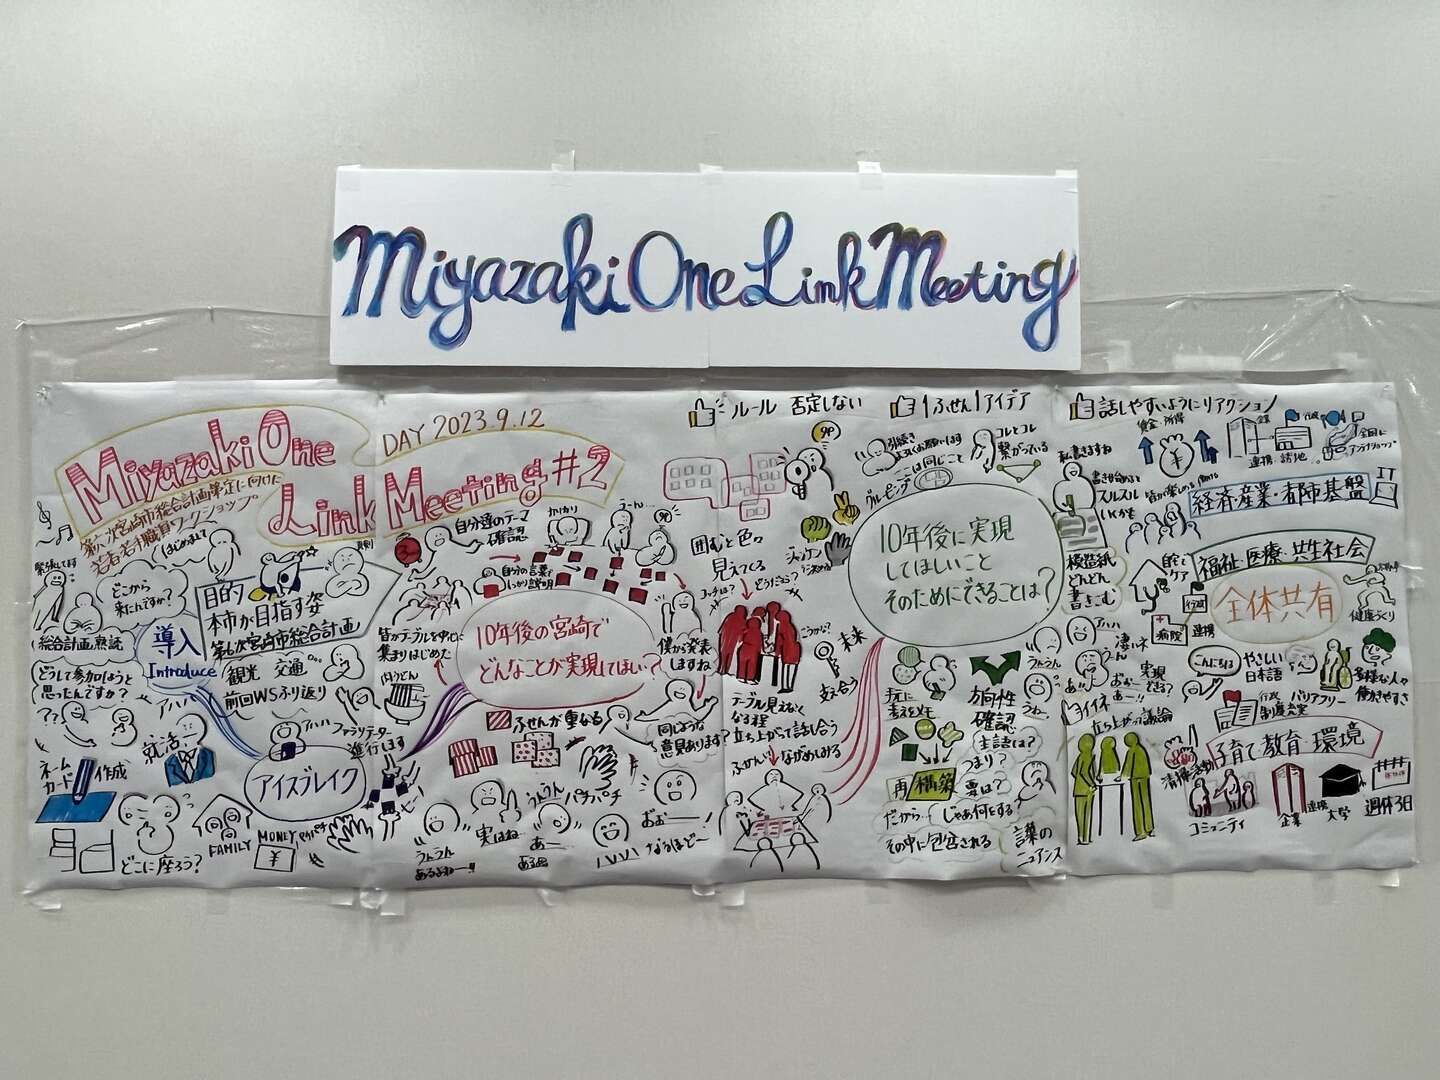 Miyazaki One Link Meeting
Miyazaki One
Link Meeting #2
DAY 2023.9.12
第六次宮崎市総合計画策定に向けた
若者・若手職員ワークショップ
はじめまして
緊張してます
どこから
来たんですか?
目的
本市が目指す姿
第6次宮崎市総合計画
総合計画熟読
導入
Introduce
観光 交通…
前回WSふり返り
どうして参加しようと
思ったんですか?
??
アハハ
アハハ
ファシリテーター
進行します
就活
アイスブレイク
ネーム
カード
作成
どこに座ろう?
FAMILY
MONEY
¥
自分達のテーマ
確認
うーん…
自分の言葉で
しっかり説明
皆がテーブルを中心に
集まりはじめた
肉うどん
10年後の宮崎で
どんなことが実現してほしい?
僕から発表
しますね
ふせんが重なる
同じような
意見あります?
うんうん
あるよねー!!
実はね
うんうん
あー
ある
パチパチ
ハハハ
おぉー
なるほどー
ルール 否定しない
1ふせん1アイデア
話しやすいようにリアクション
囲むと色々
見えてくる
どうだろう?
こうかな?
未来
支え合う
テーブル見えなく
なる程
立ち上がって話し合う
ふせんを
ながめみる
グルーピング
ここは同じこと
コレとコレ
繋がっている
10年後に実現
してほしいこと
そのためにできることは?
私書きますね
書き始めると
スルスル
いくかも
模造紙
どんどん
書きこむ
方向性
確認
主語は?
つまり?
要は?
再構築
だから
じゃあ何をする?
その中に包含される
言葉の
ニュアンス
うんうん
うわー
アハハ
凄いネ
うん
あぁ!
おぉー!!
実現
できる?
イイネ
立ち上がって議論
賃金・所得
¥
企業
行政
連携・誘地
全国に
経済・産業・都市基盤
IT
福祉・医療・共生社会
自宅で
ケア
行政
病院
連携
全体共有
健康づくり
こんにちは
やさしい
日本語
行政
制度充実
バリアフリー
多様な人々
働きやすさ
子育て・教育・環境
清掃活動
コミュニティ
企業
連携
大学
週休3日